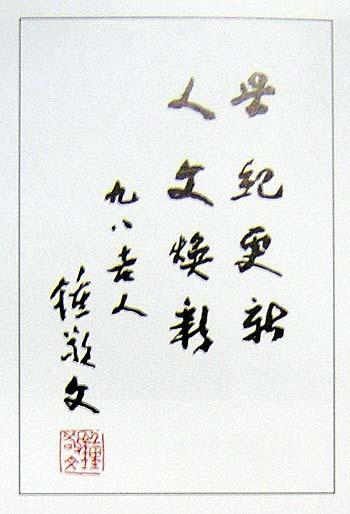 世紀更新
人文煥彩
九八老人
鍾敬文